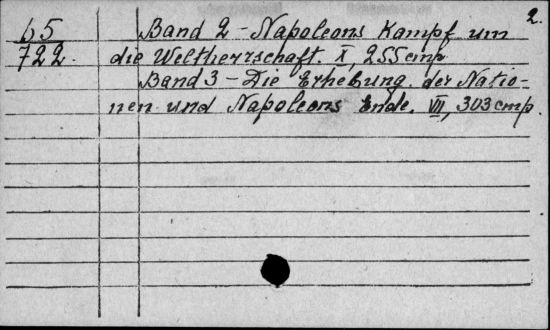 2.
65
722.
Band 2 - Napoleons Kampf um
die Weltherrschaft. X, 255 стр.
Band 3 - Die Erhebung der Natio-
nen und Napoleons Ende. VII, 303 стр.